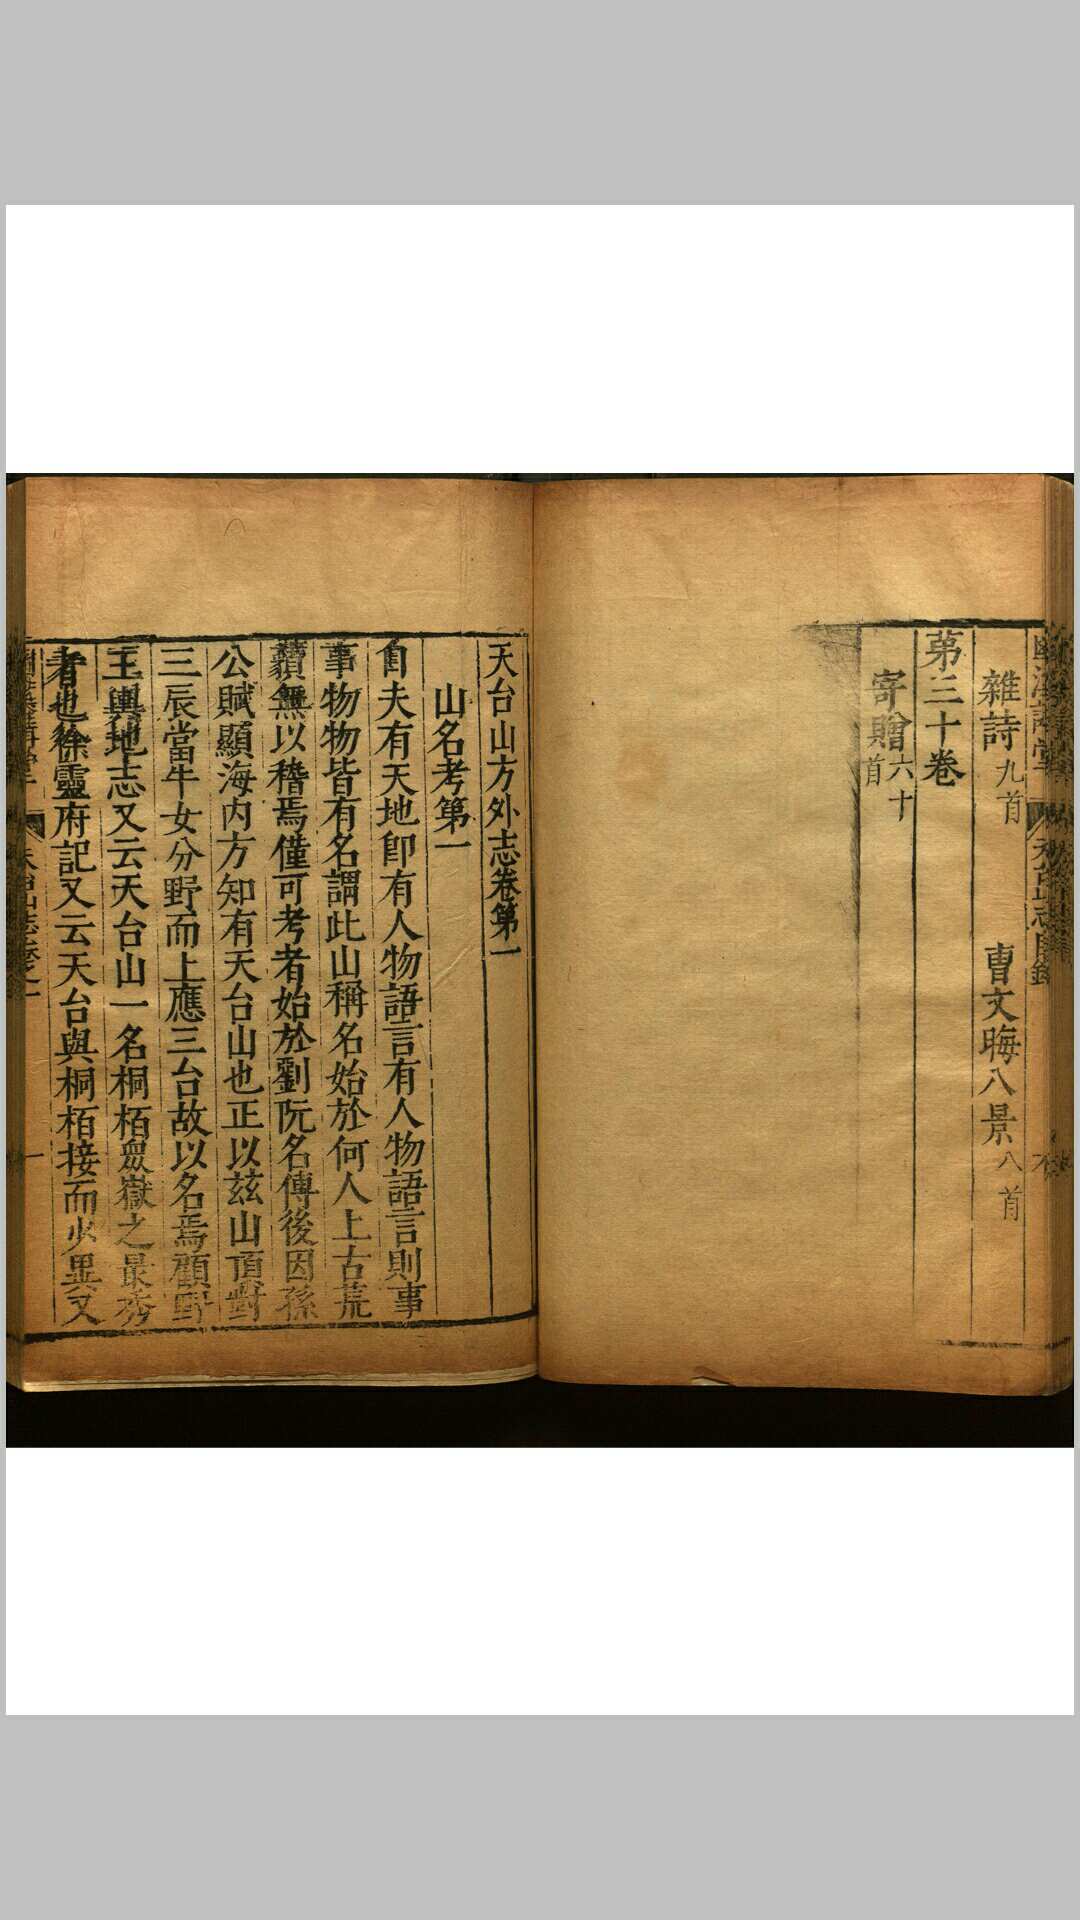 幽溪講堂 天台山志目錄 六
雜詩九首 曹文晦八景八首
第三十卷
寄贈六十首
天台山方外志卷第一
山名考第一
自夫有天地卽有人物語言有人物語言則事
事物物皆有名謂此山稱名始於何人上古荒
藾無以稽焉僅可考者始於劉阮名傳後因孫
公賦顯海內方知有天台山也正以茲山頂對
三辰當牛女分野而上應三台故以名焉顧野
王輿地志又云天台山一名桐栢衆嶽之最秀
者也徐靈府記又云天台與桐栢接而少異又
天台山志卷之一 一